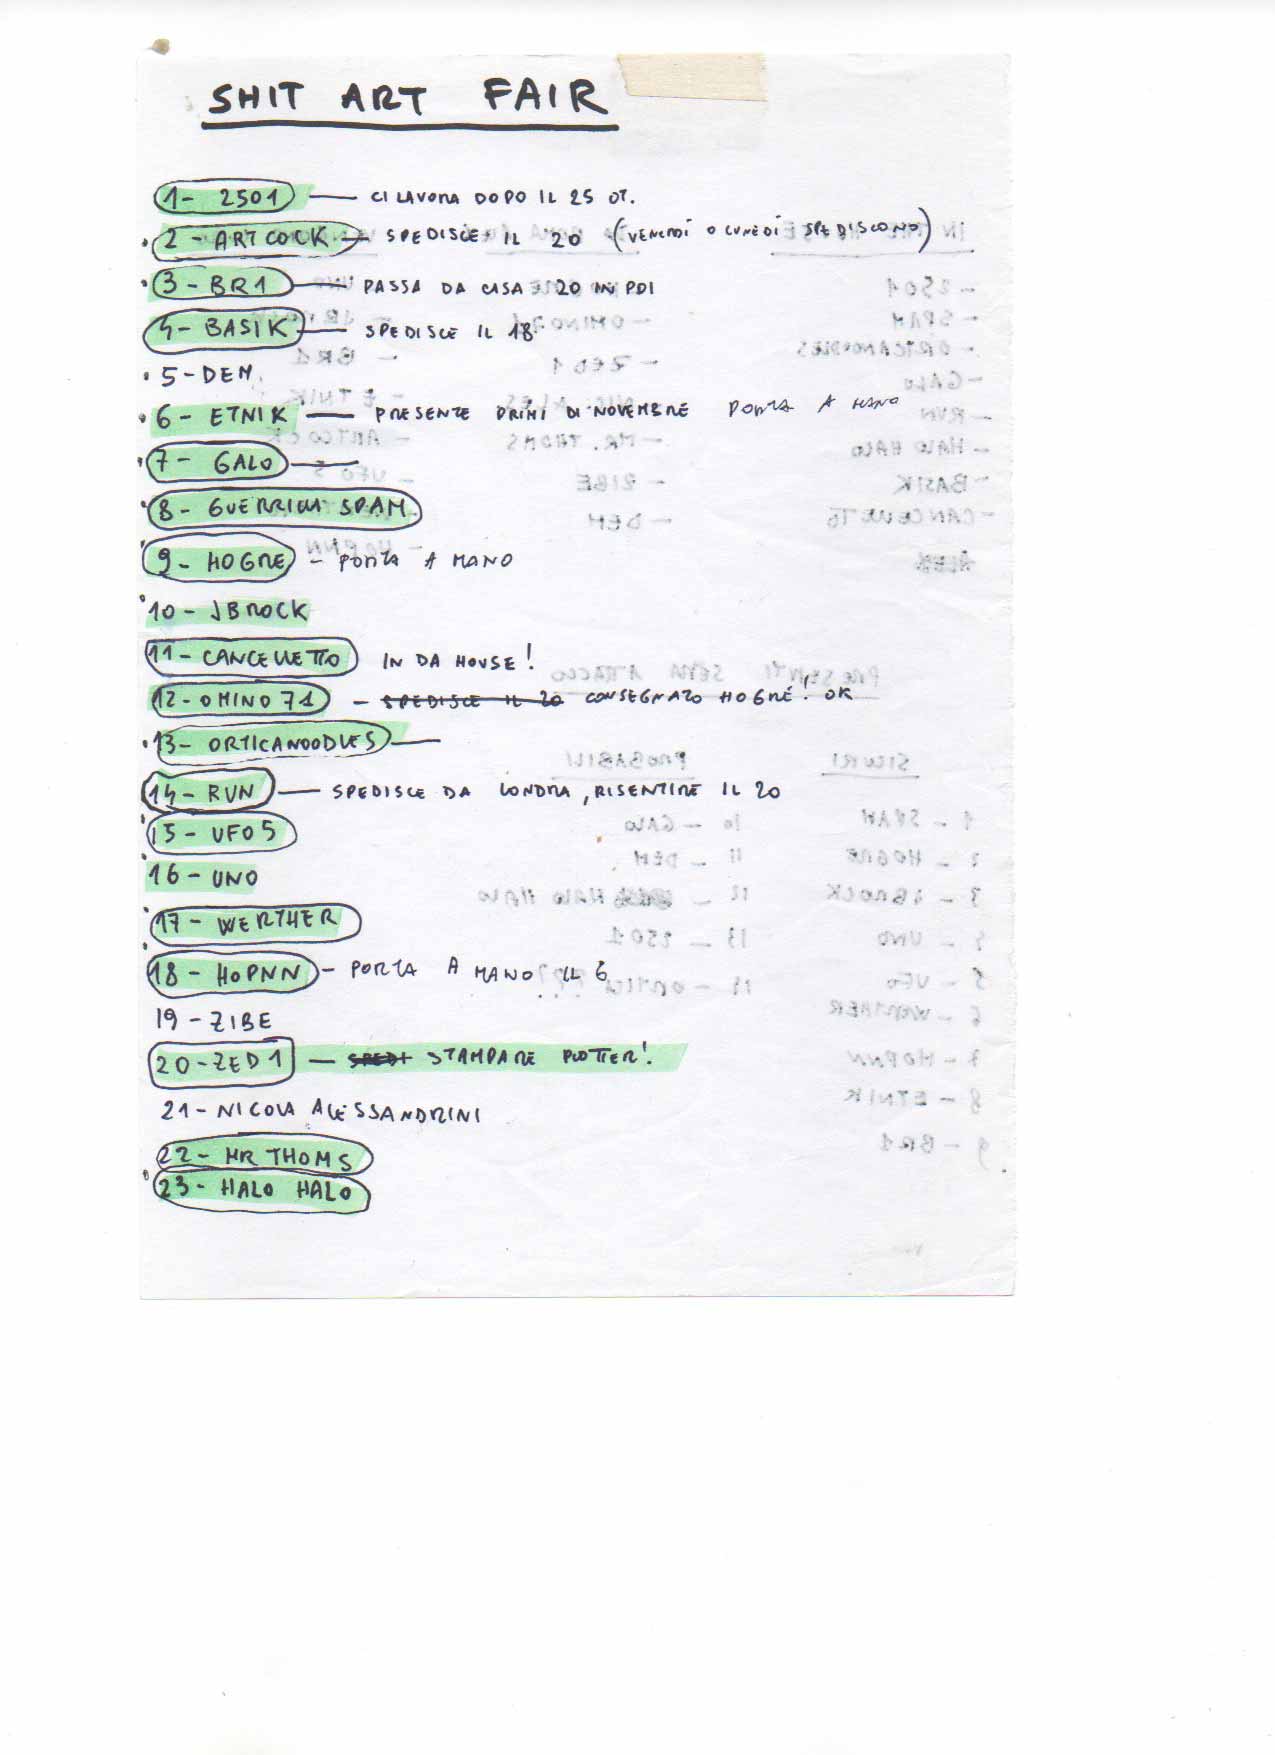 SHIT ART FAIR
1- 2501 — CI LAVORA DOPO IL 25 OT.
2- ARTCOCK — SPEDISCE IL 20 (VENERDÍ O LUNEDÍ SPEDISCONO)
3- BR1 — PASSA DA CASA 20 IN PDI
4- BASIK — SPEDISCE IL 18
5- DEM
6- ETNIK — PRESENTE PRIMI DI NOVEMBRE PORTA A MANO
7- GALO —
8- GUERRILLA SPAM
9- HOGRE — PORTA A MANO
10- JBROCK
11- CANCELLETTO IN DA HOUSE!
12- OMINO71 — SPEDISCE IL 20 CONSEGNATO HOGRÉ! OK
13- ORTICANOODLES —
14- RVN — SPEDISCE DA LONDRA, RISENTIRE IL 20
15- UFO5
16- UNO
17- WERTHER
18- HOPNN — PORTA A MANO IL 6
19- ZIBE
20- ZED1 — SPEDI STAMPARE PLOTTER!
21- NICOLA ALESSANDRINI
22- MR THOMS
23- HALO HALO